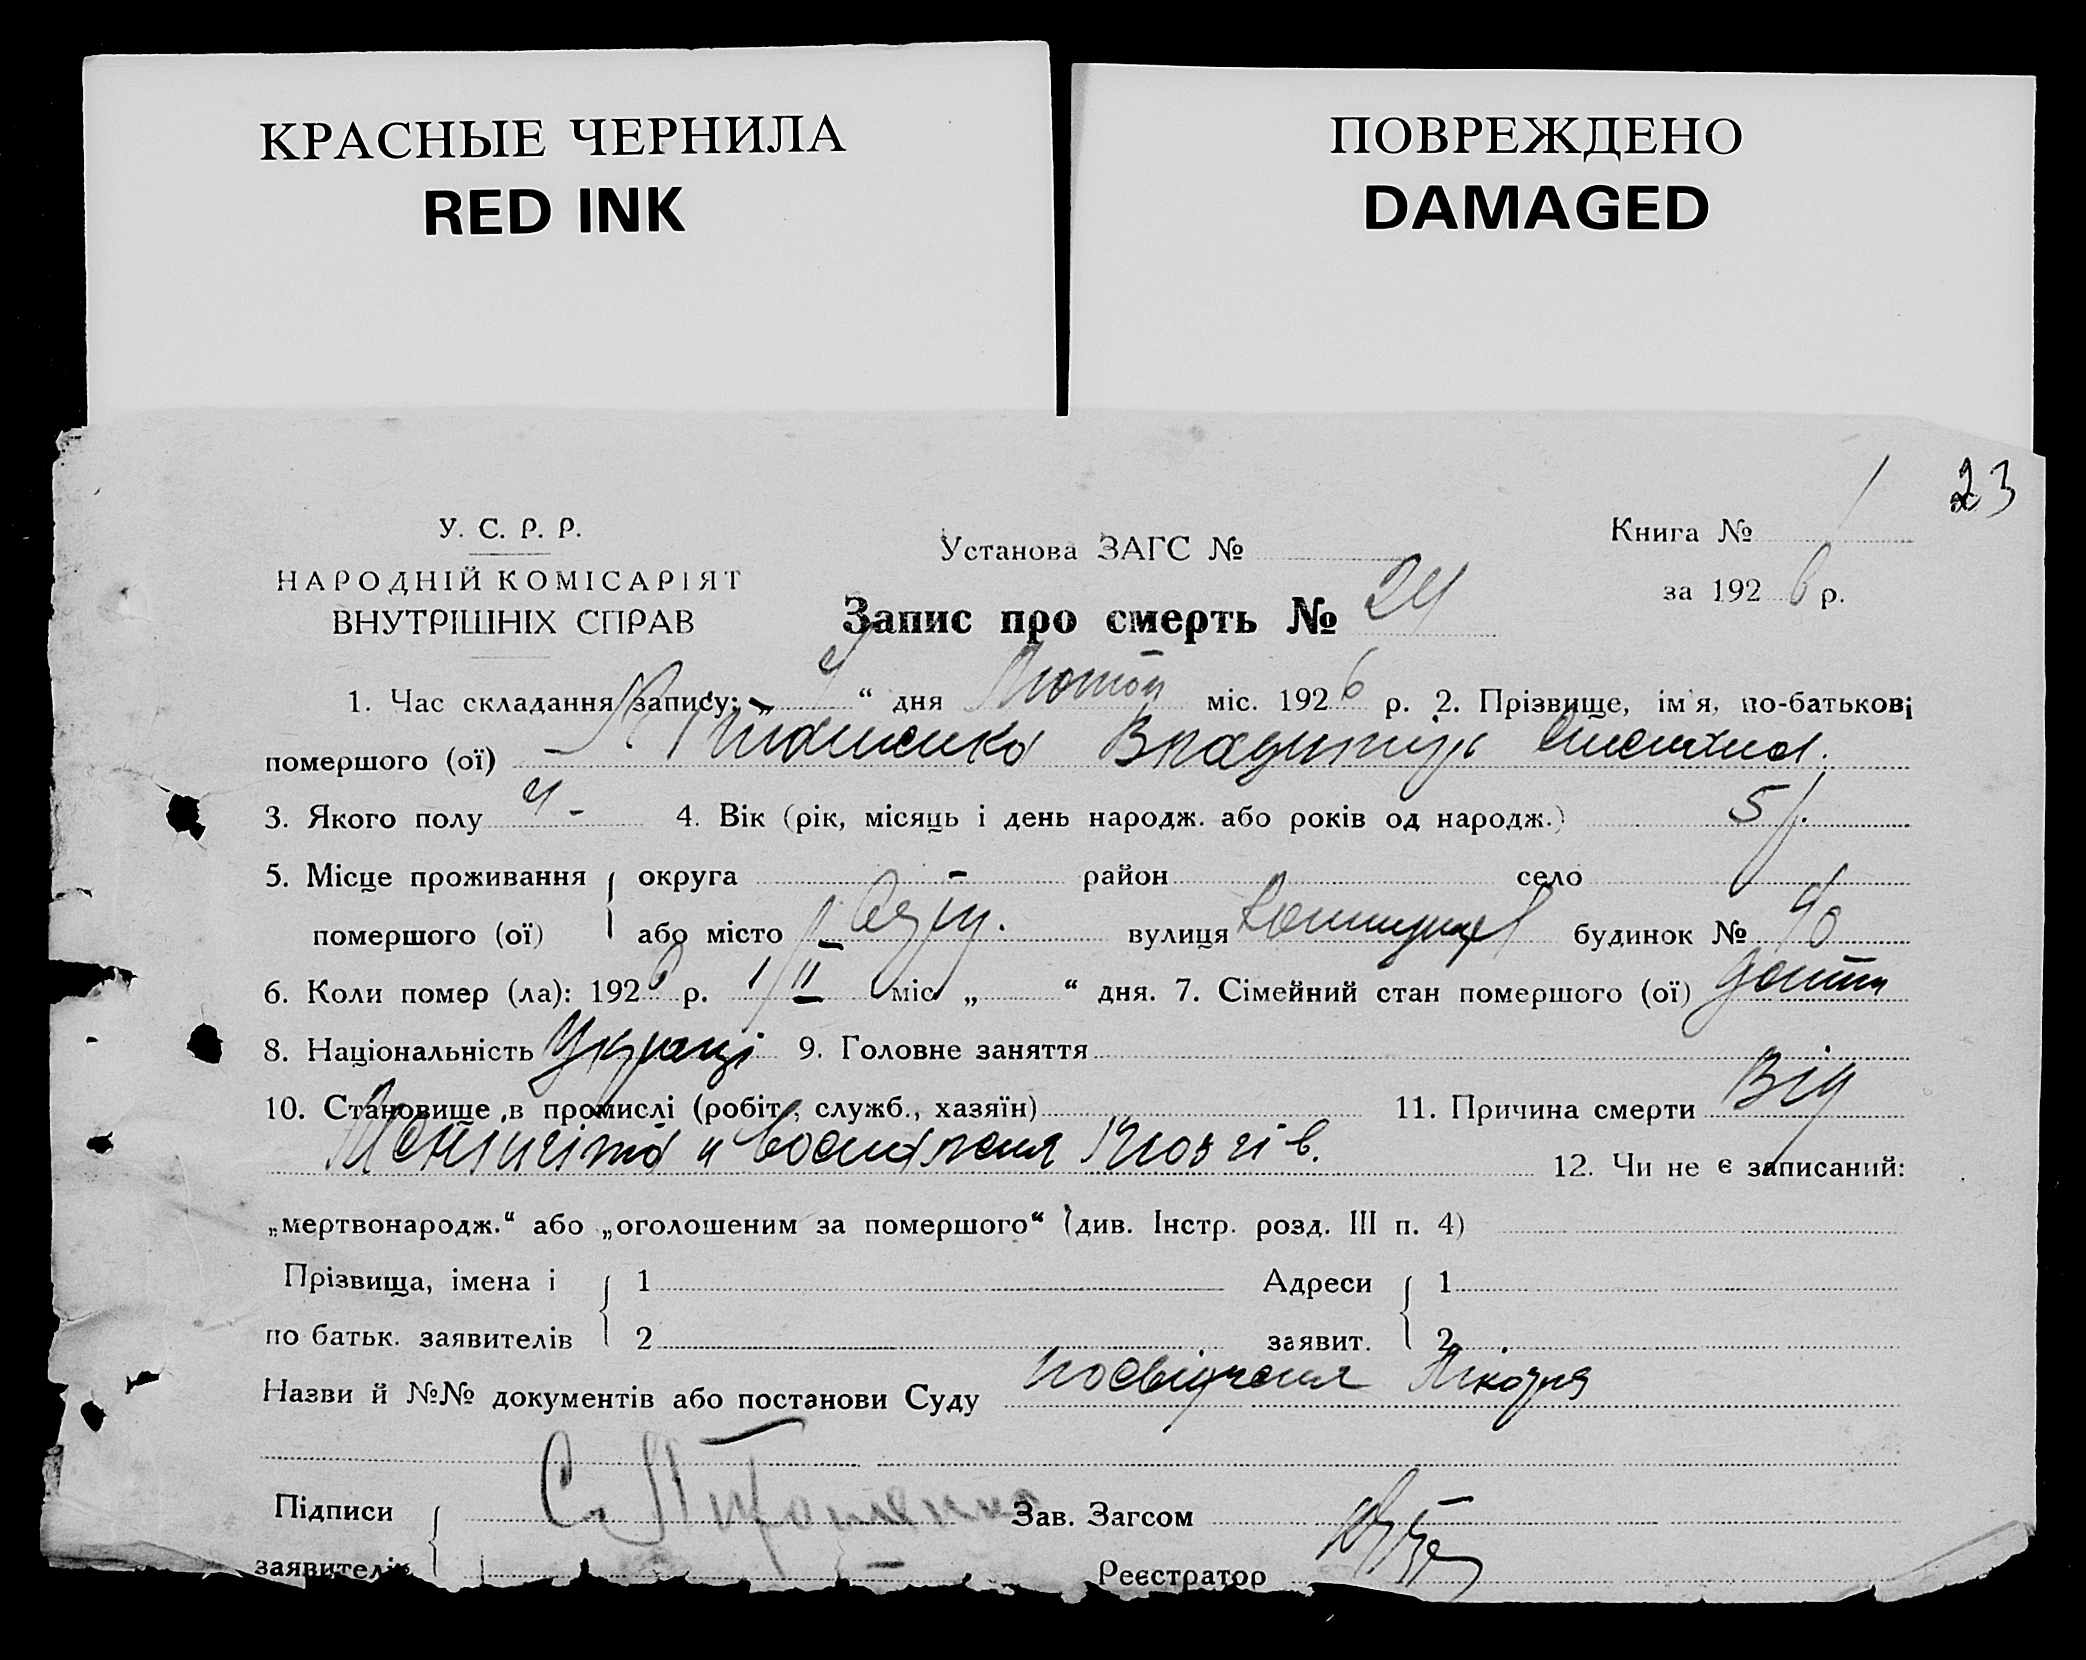 КРАСНЫЕ ЧЕРНИЛА
RED INK
ПОВРЕЖДЕНО
DAMAGED
23
У. С. Р. Р.
НАРОДНІЙ КОМІСАРІЯТ
ВНУТРІШНІХ СПРАВ
Установа ЗАГС №
Запис про смерть № 24
Книга № 1
за 1926 р.
1. Час складання запису: „4“ дня міс. 1926 р. 2. Прізвище, ім'я, по-батькові
помершого (ої) Владимир
3. Якого полу ч - 4. Вік (рік, місяць і день народж. або років од народж.) 5 р.
5. Місце проживання округа - район село
помершого (ої) або місто вулиця будинок № 40
6. Коли помер (ла): 1926 р. 1/II міс „ “ дня. 7. Сімейний стан помершого (ої)
8. Національність 9. Головне заняття
10. Становище в промислі (робіт., служб., хазяїн) 11. Причина смерти Від
Менінгіта и мозгів. 12. Чи не є записаний:
„мертвонародж.“ або „оголошеним за помершого“ (див. Інстр. розд. III п. 4)
Прізвища, імена і 1 Адреси 1
по батьк. заявителів 2 заявит. 2
Назви й №№ документів або постанови Суду посвідченя Лікоря
Підписи Зав. Загсом
заявителів Реєстратор